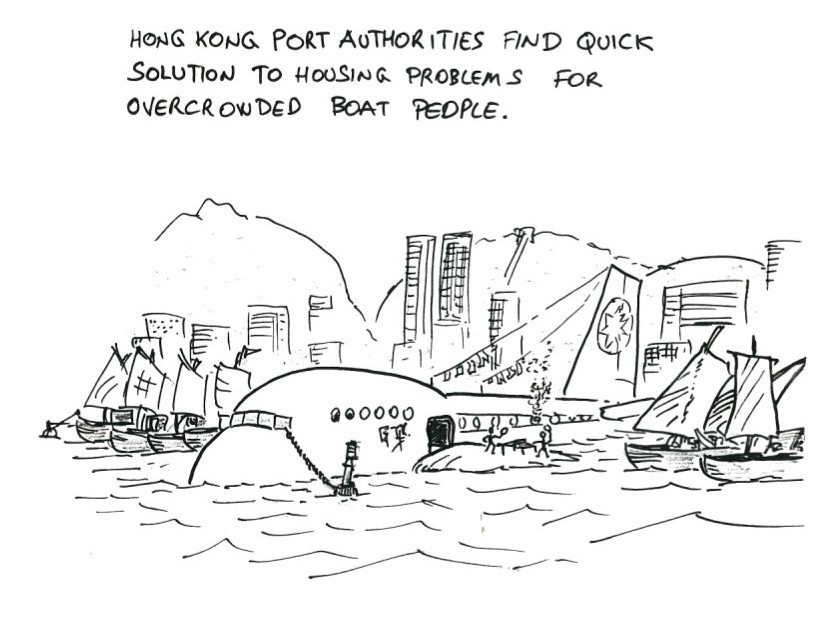 HONG KONG PORT AUTHORITIES FIND QUICK
SOLUTION TO HOUSING PROBLEMS FOR
OVERCROWDED BOAT PEOPLE.